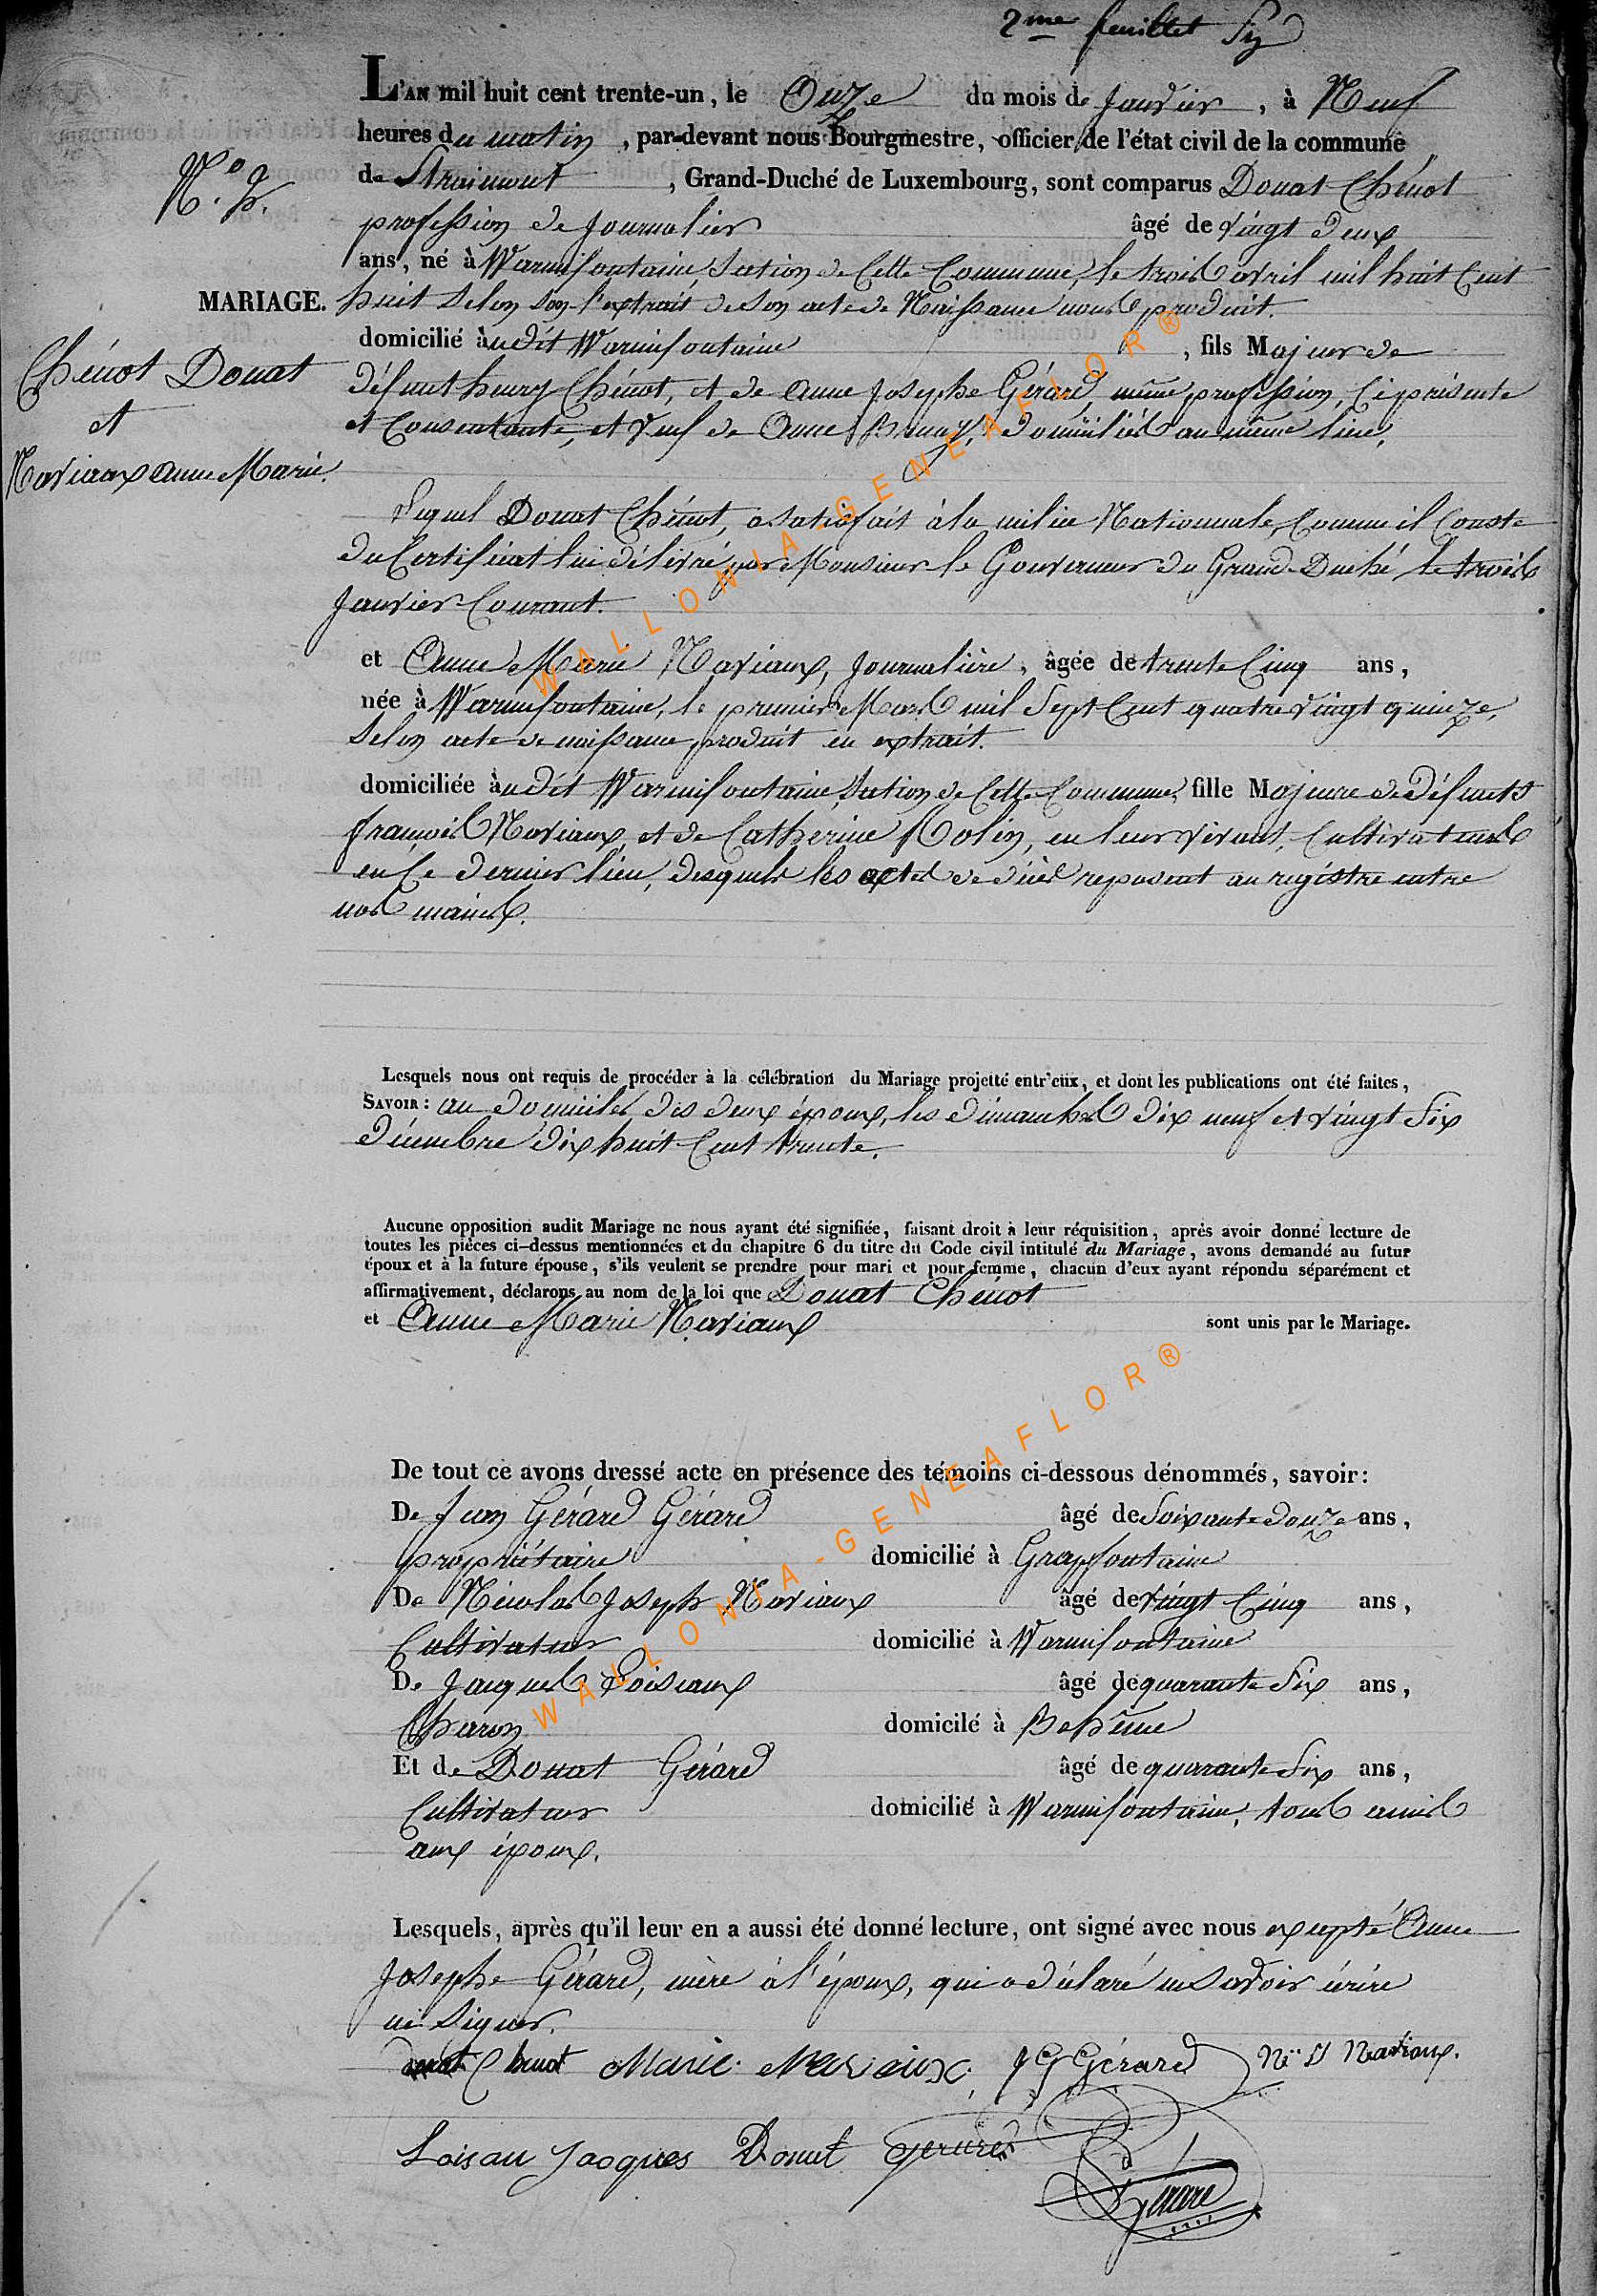 2me feuillet
L'AN mil huit cent trente-un, le Onze du mois de Janvier, à Neuf
heures du matin, par-devant nous Bourgmestre, officier de l'état civil de la commune
de Straimont, Grand-Duché de Luxembourg, sont comparus Donat Chénot
profession de Journalier âgé de vingt deux
ans, né à Warmifontaine, Section de Cette Commune, le trois avril mil huit Cent
huit Selon l'extrait de Son acte de Naissance nous produit.
MARIAGE.
domicilié audit Warmifontaine, fils Majeur de
Chénot Donat
et
Naviaux Anne Marie.
défunt henry Chénot, et de Anne Josephe Gérard, même profession, Ci présente
et Consentante, et veuf de Anne domiciliés au même lieu.
Lequel Donat Chénot, a satisfait à la milice Nationnale, Comme il Conste
du Certificat lui délivré par Monsieur le Gouverneur du Grand-Duché le trois
Janvier Courant.
et Anne Marie Naviaux, Journalière, âgée de trente Cinq ans,
née à Warmifontaine, le premier Mars mil Sept Cent quatre vingt quinze,
Selon acte de naissance, produit en extrait.
domiciliée audit Warmifontaine, Section de Cette Commune, fille Majeure de défunts
françois Naviaux, et de Catherine Rolin, en leur vivant, Cultivateurs
en Ce dernier lieu, desquels les actes de décès reposent au registre entre
nos mains.
Lesquels nous ont requis de procéder à la célébration du Mariage projetté entr'eux, et dont les publications ont été faites,
SAVOIR: au domicile des deux époux, les dimanches dix neuf et vingt Six
décembre dix huit Cent trente.
Aucune opposition audit Mariage ne nous ayant été signifiée, faisant droit à leur réquisition, après avoir donné lecture de
toutes les pièces ci-dessus mentionnées et du chapitre 6 du titre du Code civil intitulé du Mariage, avons demandé au futur
époux et à la future épouse, s'ils veulent se prendre pour mari et pour femme, chacun d'eux ayant répondu séparément et
affirmativement, déclarons au nom de la loi que Donat Chénot
et Anne Marie Naviaux sont unis par le Mariage.
De tout ce avons dressé acte en présence des témoins ci-dessous dénommés, savoir:
De Jean Gérard Gérard âgé de Soixante douze ans,
propriétaire domicilié à Grapfontaine
De Nicolas Joseph Naviaux âgé de vingt Cinq ans,
Cultivateur domicilié à Warmifontaine
De Jacques Loiseaux âgé de quarante Six ans,
Charon domicilé à Behême
Et de Donat Gérard âgé de quarante Six ans,
Cultivateur domicilié à Warmifontaine, tous amis
aux époux.
Lesquels, après qu'il leur en a aussi été donné lecture, ont signé avec nous excepté Anne
Josephe Gérard, mère à l'époux, qui a déclaré ne Savoir écrire
ni Signer.
donat Chenot Marie Naviaux JG Gérard Naviaux.
Loisau Jacques Donat Gerard
Gérard
WALLONIA-GENEAFLOR®
WALLONIA-GENEAFLOR®